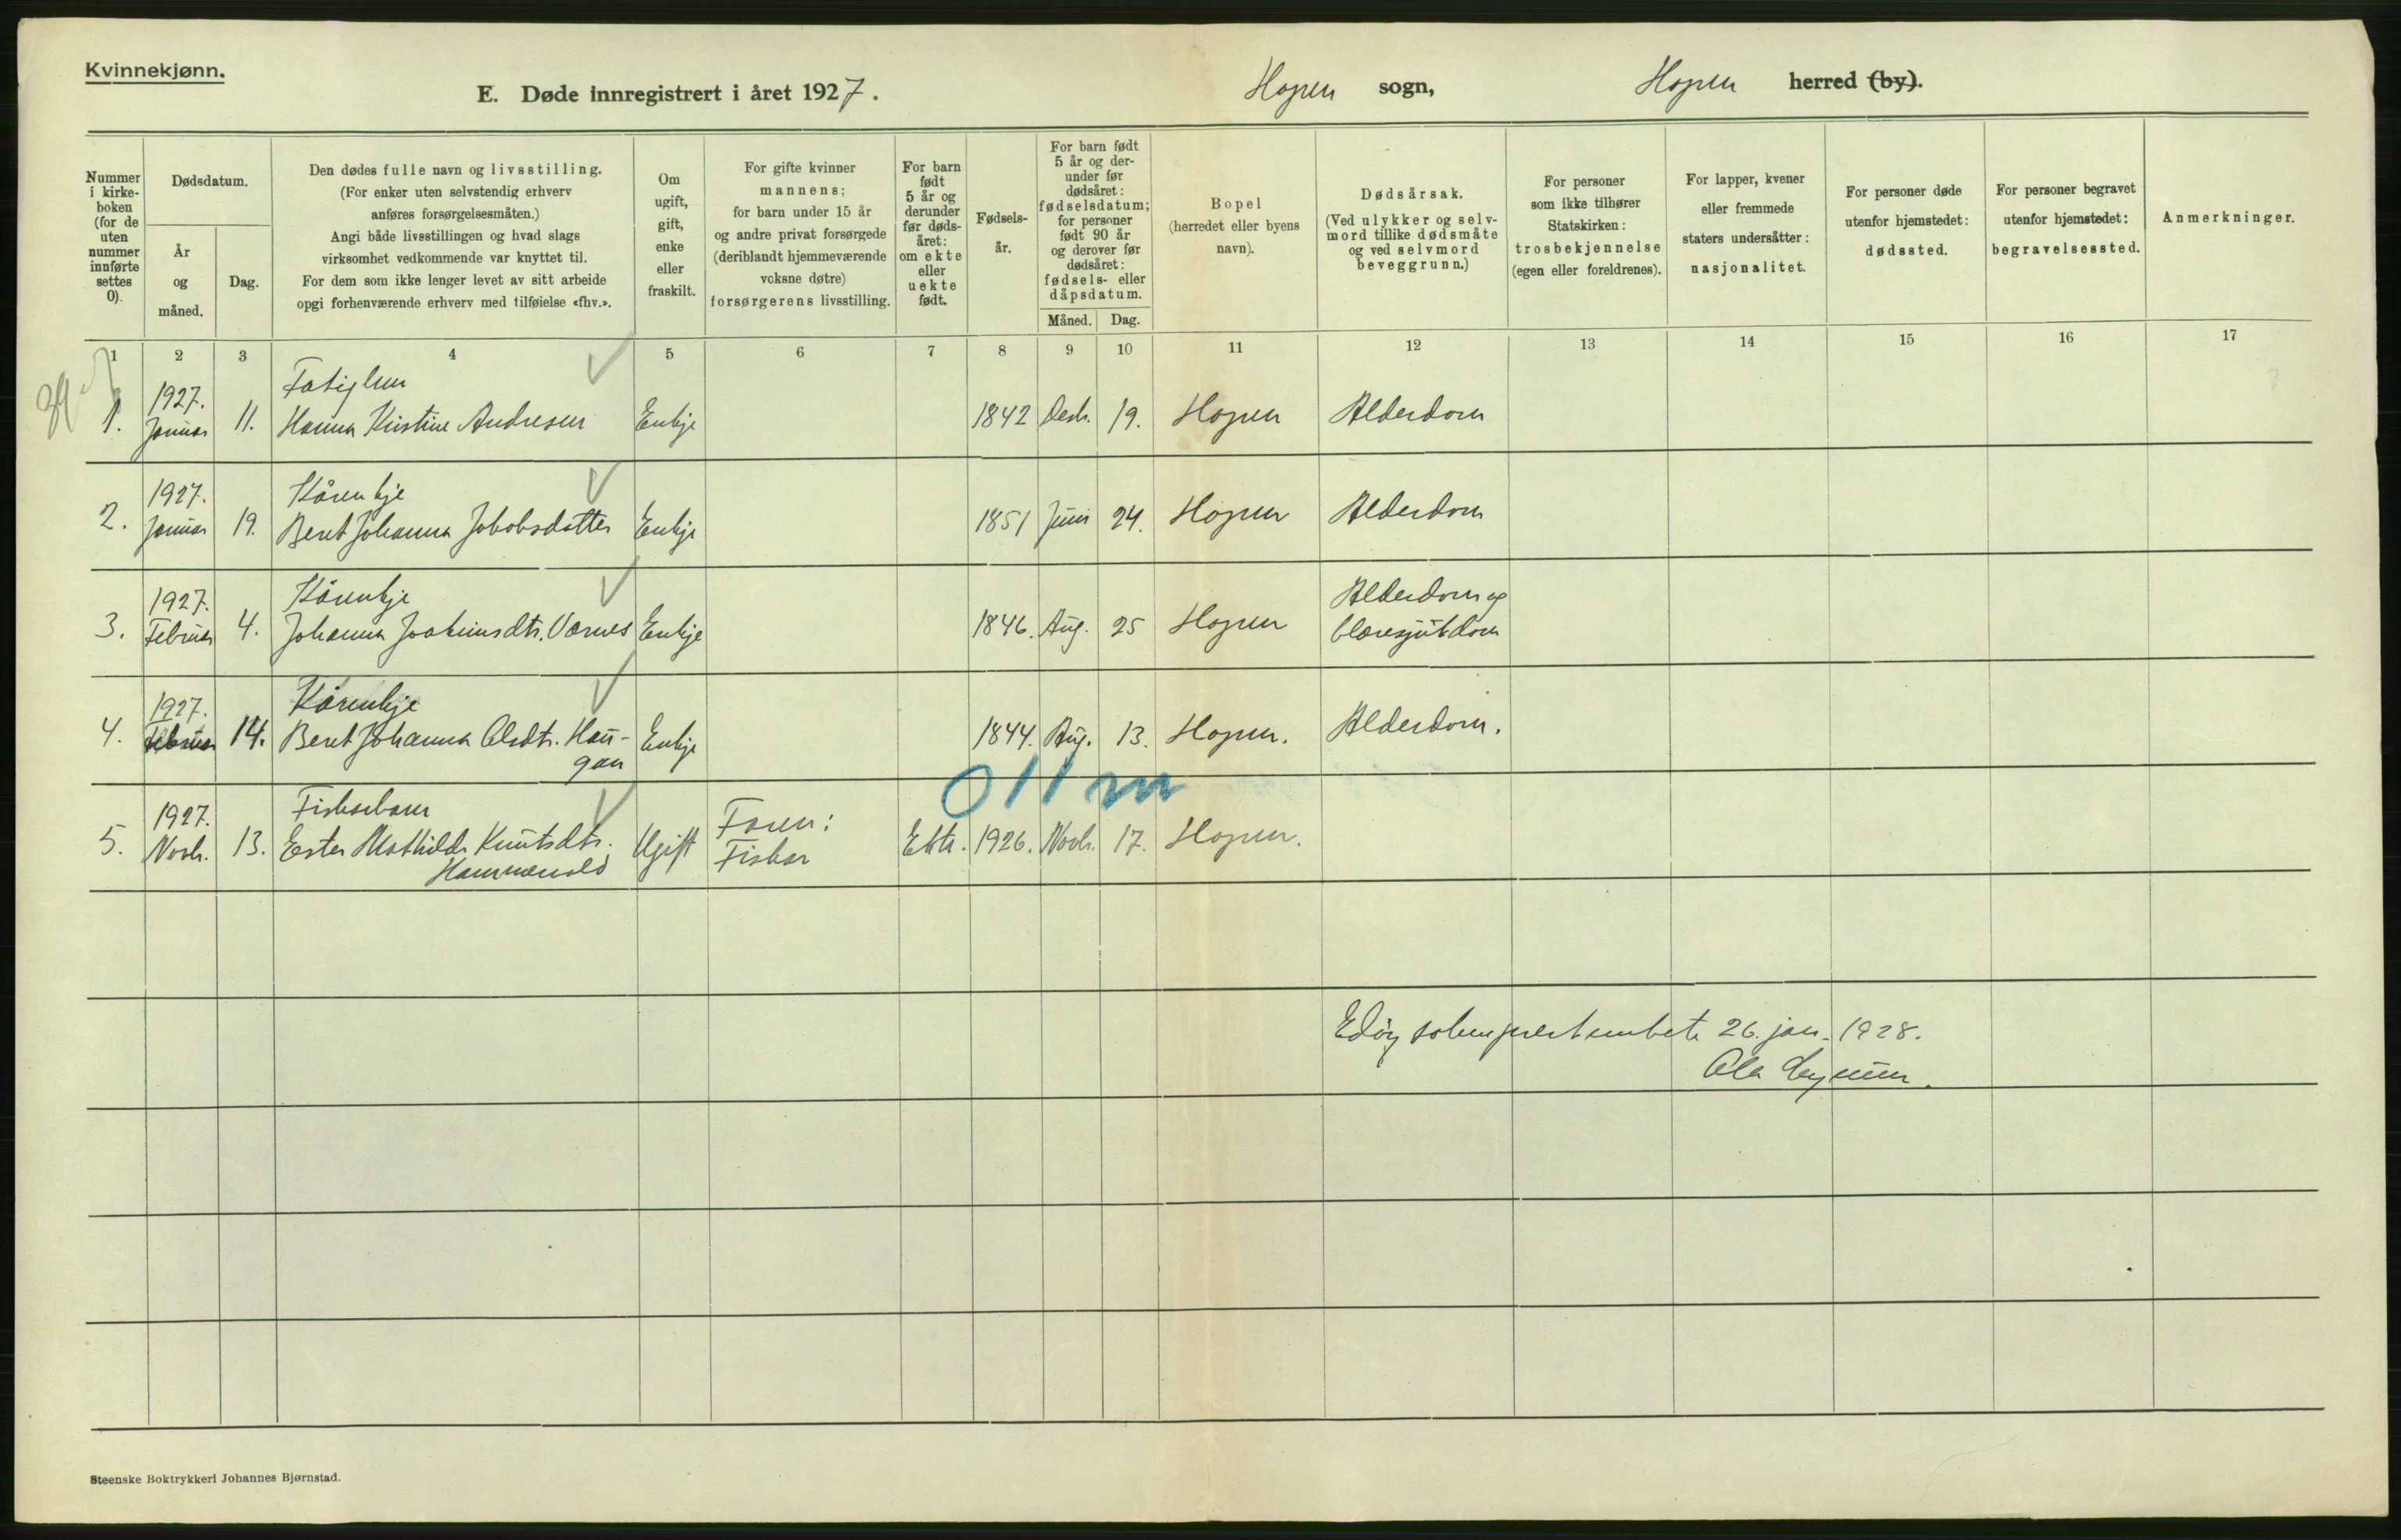 Kvinnekjønn.
E. Døde innregistrert i året 1927.
Hopen sogn,
Hopen herred (by).
Nummer
i kirke-
boken
(for de
uten
nummer
innførte
settes
0).
Dødsdatum.
År
og
måned.
Dag.
Den dødes fulle navn og livsstilling.
(For enker uten selvstendig erhverv
anføres forsørgelsesmåten.)
Angi både livsstillingen og hvad slags
virksomhet vedkommende var knyttet til.
For dem som ikke lenger levet av sitt arbeide
opgi forhenværende erhverv med tilføielse «fhv.».
Om
ugift,
gift,
enke
eller
fraskilt.
For gifte kvinner
mannens;
for barn under 15 år
og andre privat forsørgede
(deriblandt hjemmeværende
voksne døtre)
forsørgerens livsstilling.
For barn
født
5 år og
derunder
før døds-
året:
om ekte
eller
uekte
født.
Fødsels-
år.
For barn født
5 år og der-
under før
dødsåret:
fødselsdatum;
for personer
født 90 år
og derover før
dødsåret:
fødsels- eller
dåpsdatum.
Måned. Dag.
Bopel
(herredet eller byens
navn).
Dødsårsak.
(Ved ulykker og selv-
mord tillike dødsmåte
og ved selvmord
beveggrunn.)
For personer
som ikke tilhører
Statskirken:
trosbekjennelse
(egen eller foreldrenes).
For lapper, kvener
eller fremmede
staters undersåtter:
nasjonalitet.
For personer døde
utenfor hjemstedet:
dødssted.
For personer begravet
utenfor hjemstedet:
begravelsessted.
Anmerkninger.
1 2 3 4 5 6 7 8 9 10 11 12 13 14 15 16 17
1927. Fatiglem
1. Januar 11. Hanna Kristine Andresen Enkje 1842 Desbr. 19. Hopen Alderdom
1927. Kårenkje
2. Januar 19. Beret Johanna Jakobsdatter Enkje 1851 Juni 24. Hopen Alderdom
1927. Kårenkje Alderdom og
3. Februar 4. Johanna Joakimsdtr. Varnes Enkje 1846. Aug. 25 Hopen blæresjukdom
1927. Kårenkje
4. Februar 14. Beret Johanna Olsdtr. Hau- Enkje 1844. Aug. 13. Hopen. Alderdom.
gan
011 m
1927. Fiskarbarn Faren:
5. Novbr. 13. Ester Mathilde Knutsdtr. Ugift Fiskar Ekte. 1926. Novbr. 17. Hopen.
Hammervold
Edøy sokneprestembete 26. jan. 1928.
Ola
Steenske Boktrykkeri Johannes Bjørnstad.